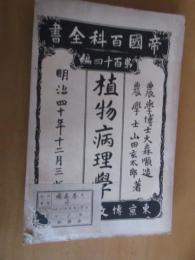 帝國百科全書
第百十四編
農學博士大森順造
農學士山田玄太郎著
植物病理學
明治四十年十二月三
東京博文